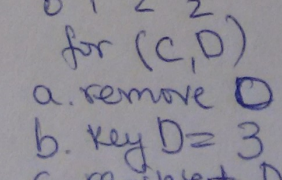 0 1 2 2
for (C,D)
a. remove D
b. key D = 3